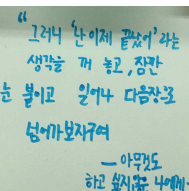 “그러니 '난 이제 끝났어' 라는
생각을 꺼 놓고, 잠깐
눈 붙이고 일어나 다음장으로
넘어가보자구여
— 아무것도
하고 싶지않은 나에게